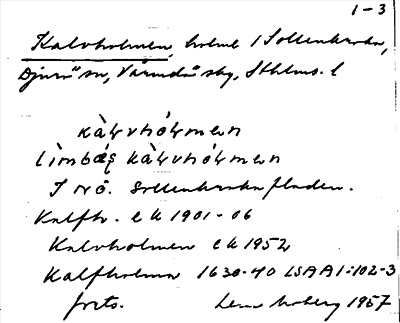 1-3
Kalvholmen, holme i Sollenkroka,
Djurö sn, Värmdö skg, Sthlms. l
kàḷvhóḷmen
i nö. Sollenkrokafladen.
Kalfh. ek 1901-06
Kalvholmen ek 1952
Kalfholmen 1630-40 LSA A1:102-3
forts. 1957